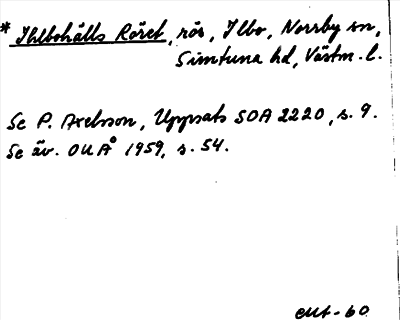 * Ihlbohålls Röret, rör, Ilbo, Norrby sn,
Simtuna hd, Västm. l.
Se P. Axelsson, Uppsats SOA 2220, s. 9.
Se äv. OUÅ 1959, s. 54.
-60